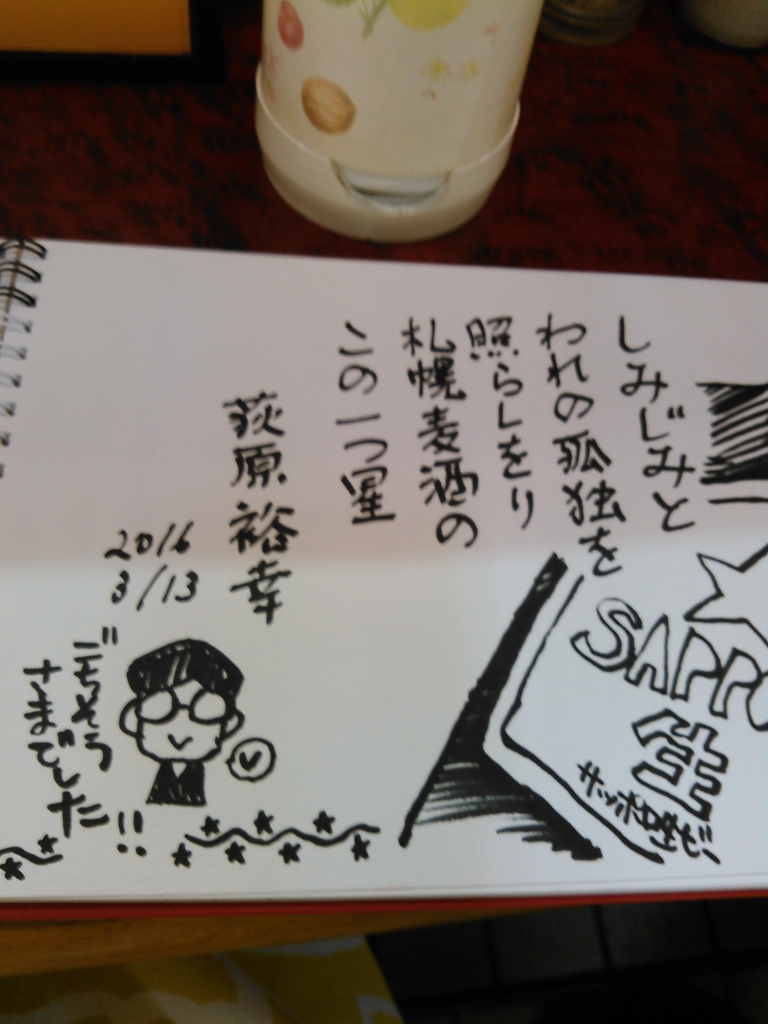 しみじみと
われの孤独を
照らしをり
札幌麦酒の
この一つ星
荻原裕幸
2016
3/13
ごちそう
さまでした!!
SAPP
生
サッポロ生ビー